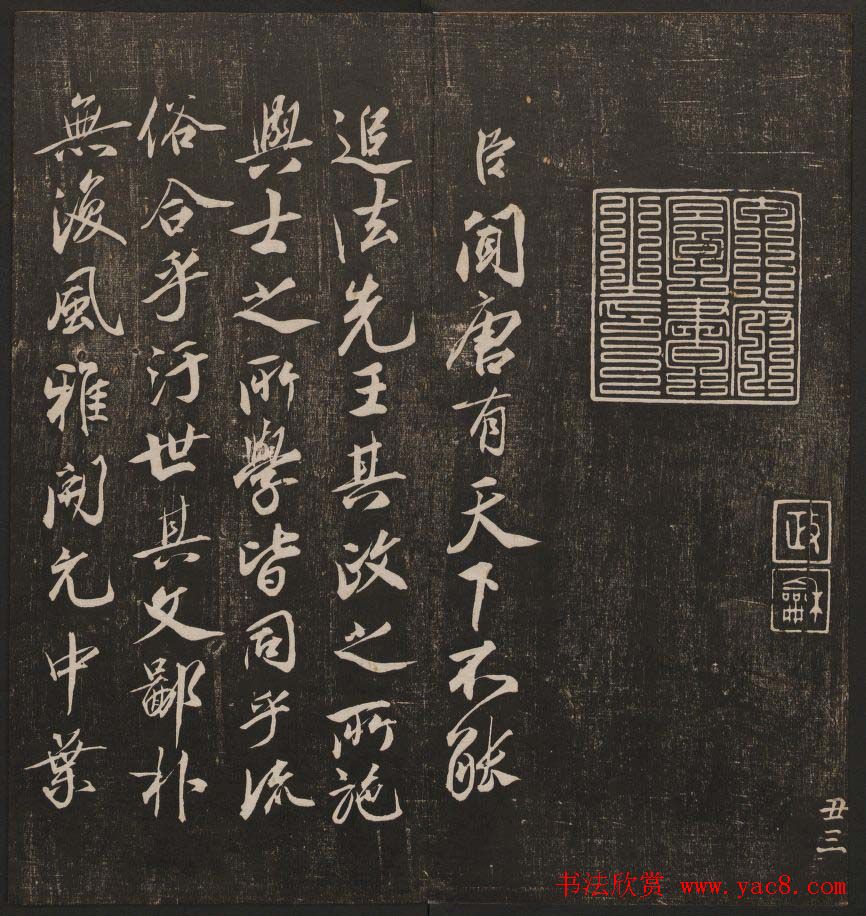 政龢
丑三
臣聞唐有天下不能
追法先王其政之所施
與士之所學皆同乎流
俗合乎汙世其文鄙朴
無復風雅開元中葉
书法欣赏 www.yac8.com